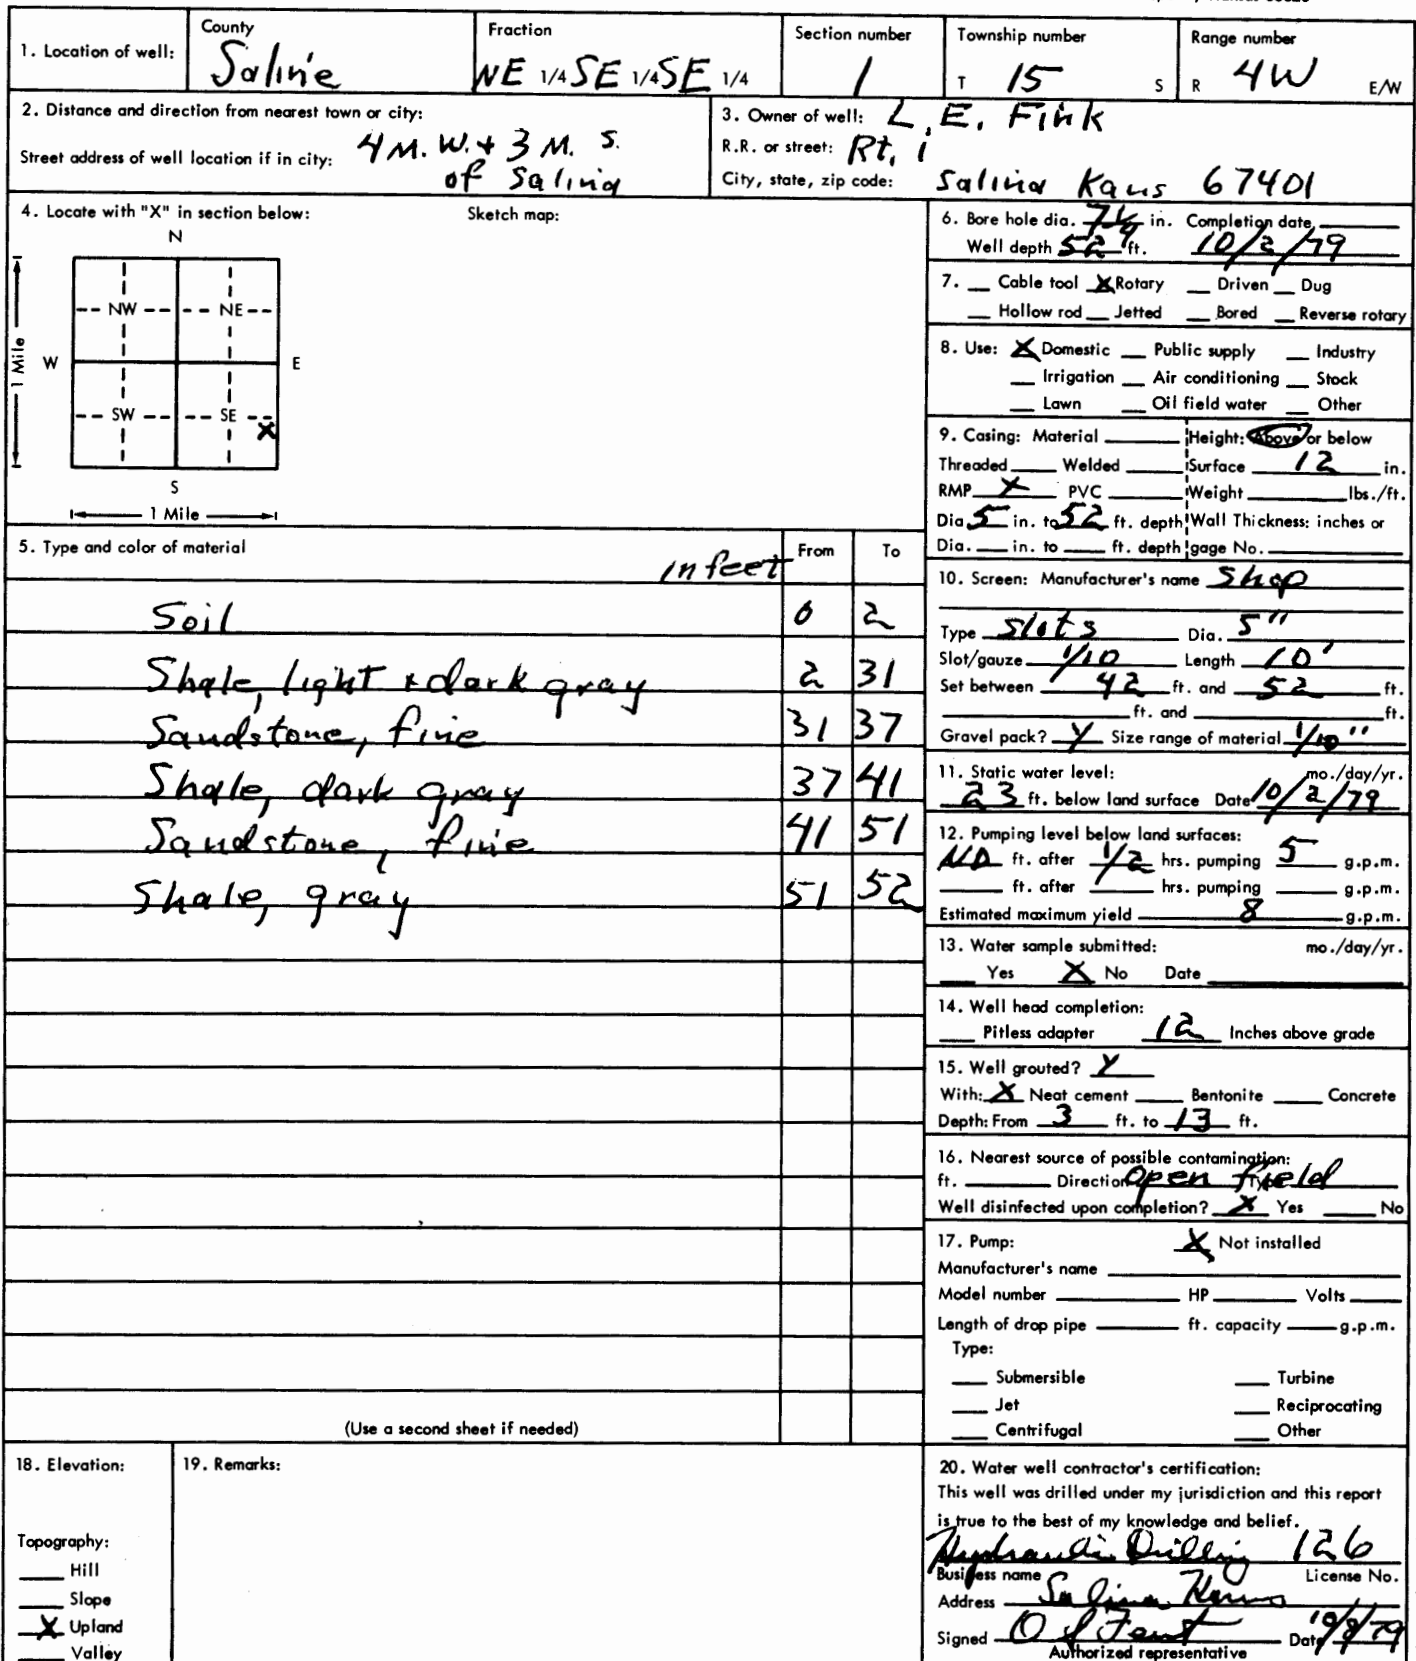 County Fraction Section number Township number Range number
1. Location of well: Saline NE 1/4 SE 1/4 SE 1/4 1 T 15 S R 4W E/W
2. Distance and direction from nearest town or city: 4 M. W. + 3 M. S.
Street address of well location if in city: of Salina
3. Owner of well: L. E. Fink
R.R. or street: Rt. 1
City, state, zip code: Salina Kans 67401
4. Locate with "X" in section below: Sketch map:
N
NW NE
W E
1 Mile
SW SE X
S
1 Mile
5. Type and color of material in feet From To
Soil 0 2
Shale, light + dark gray 2 31
Sandstone, fine 31 37
Shale, dark gray 37 41
Sandstone, fine 41 51
Shale, gray 51 52
(Use a second sheet if needed)
6. Bore hole dia. 7 1/4 in. Completion date
Well depth 52 ft. 10/2/79
7. Cable tool X Rotary Driven Dug
Hollow rod Jetted Bored Reverse rotary
8. Use: X Domestic Public supply Industry
Irrigation Air conditioning Stock
Lawn Oil field water Other
9. Casing: Material Height: Above or below
Threaded Welded Surface 12 in.
RMP X PVC Weight lbs./ft.
Dia 5 in. to 52 ft. depth Wall Thickness: inches or
Dia. in. to ft. depth gage No.
10. Screen: Manufacturer's name Shop
Type Slots Dia. 5"
Slot/gauze 1/10 Length 10'
Set between 42 ft. and 52 ft.
ft. and ft.
Gravel pack? Y Size range of material 1/10"
11. Static water level: mo./day/yr.
23 ft. below land surface Date 10/2/79
12. Pumping level below land surfaces:
ND ft. after 1/2 hrs. pumping 5 g.p.m.
ft. after hrs. pumping g.p.m.
Estimated maximum yield 8 g.p.m.
13. Water sample submitted: mo./day/yr.
Yes X No Date
14. Well head completion:
Pitless adapter 12 Inches above grade
15. Well grouted? Y
With: X Neat cement Bentonite Concrete
Depth: From 3 ft. to 13 ft.
16. Nearest source of possible contamination:
ft. Direction open field Type
Well disinfected upon completion? X Yes No
17. Pump: X Not installed
Manufacturer's name
Model number HP Volts
Length of drop pipe ft. capacity g.p.m.
Type:
Submersible Turbine
Jet Reciprocating
Centrifugal Other
18. Elevation:
Topography:
Hill
Slope
X Upland
Valley
19. Remarks:
20. Water well contractor's certification:
This well was drilled under my jurisdiction and this report
is true to the best of my knowledge and belief.
Hydraulic Drilling 126
Business name License No.
Address Salina Kans
Signed Date 10/8/79
Authorized representative